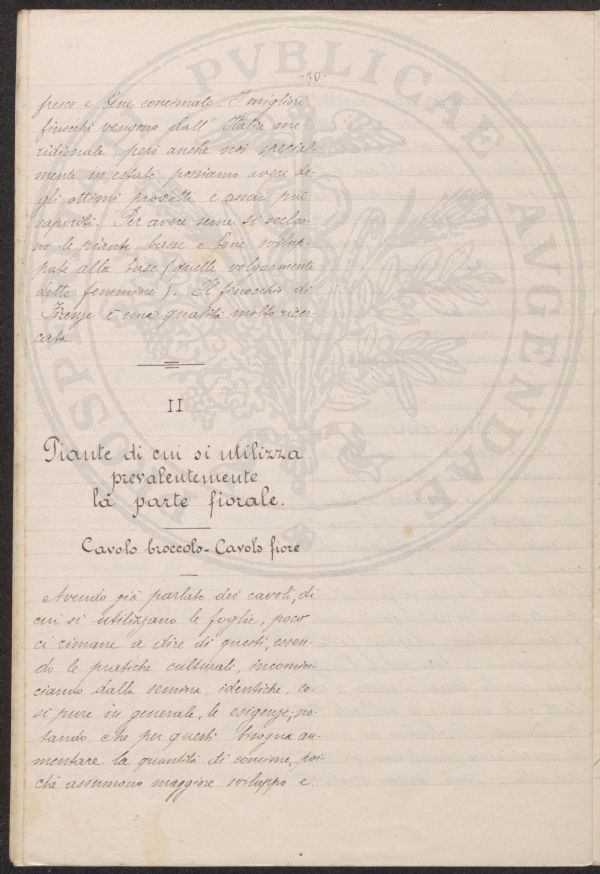 -70-
fresco e bene concimato. I migliori
finocchi vengono dall' Italia me-
ridionale però anche noi special-
mente in estate possiamo avere de-
gli ottimi prodotti e assai più
saporiti. Per avere seme si scelgo-
no le piante basse e bene svilup-
pate alla base (quelle volgarmente
dette femmine). Il finocchio di
Firenze è una qualità molto ricer-
cata.
II
Piante di cui si utilizza
prevalentemente
la parte fiorale.
Cavolo broccolo - Cavolo fiore
Avendo già parlato dei cavoli, di
cui si utilizzano le foglie, poco
ci rimane a dire di questi, essen-
do le pratiche culturali, incomin-
ciando dalla semina, identiche, co-
si pure in generale, le esigenze, no-
tando che per questi bisogna au-
mentare la quantità di concime, poi-
chè assumono maggiore sviluppo e
PVBLICAE AVGENDAE PROSP